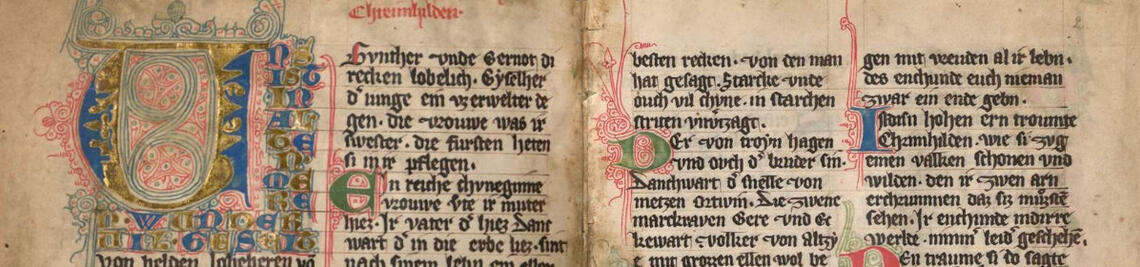 Chreimhilden.
VNS IST IN ALTEN MERE
N. WUNDER
VIL. GESEIT
von helden lobeberen vō
Gunther vnde Gernot di
recken lobelich. Gyselher
d' iunge ein vz erwelter de
gen. die vrouwe was ir
swester. die fursten heten
si in ir pflegen.
Ein reiche chvneginne
vrouwe Vte ir muter
hiez. Ir vater d' hiez Danc
wart d' in die erbe liez. sint
nach sinem lebn ein ellen
besten recken. von den man
hat gesagt. Starche vnde
ouch vil chvne. in starchen
striten vnvrzagt.
Der von troyn hagen
vnd ovch d' bruder sin.
Danchwart d' snelle von
metzen ortwin. Die zwene
markraven Gere vnd Ec
kewart volker von Altzy
e mit grozen ellen wol be
gen mit vreuden al ir lebn.
des enchunde euch nieman
zwar ein ende gebn.
In disn hohen ern troumte
Chrimhilden. wie si zvg
einen valken schonen vnd
wilden. den ir zwen arn
erchrummen daz siz mustē
sehen. Ir enchunde in dirre
werlde. nimm' leid' geschehē.
Den traume si do sagte